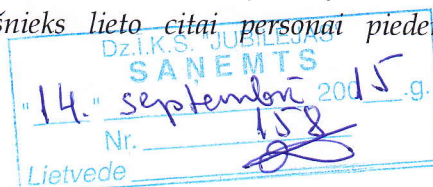 šnieks lieto citai personai pieder
Dz.I.K.S. "JUBILEJAS"
SAŅEMTS
"14." septembrī 2015.g.
Nr. 158
Lietvede